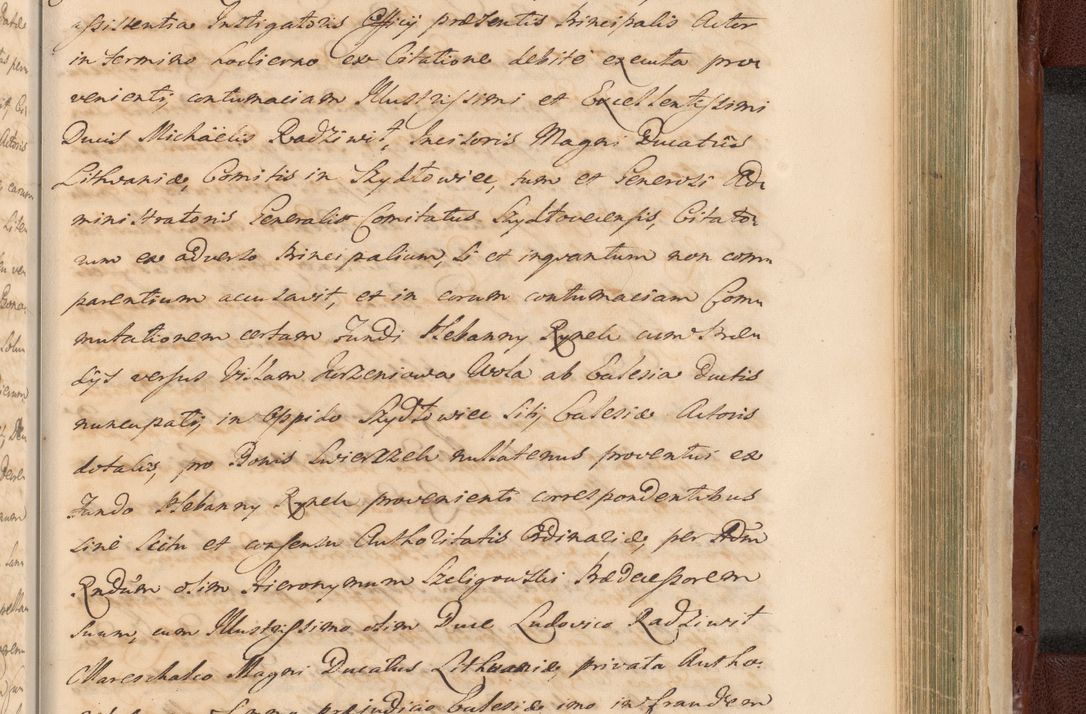 assistentia Instigatoris Officij præsentis Principalis Actor
in termino hodierno ex Citatione debite executa prove
venienti, contumaciam Illustrissimi et Excellentissimi
Ducis Michaëlis Radziwił, Incisoris Magni Ducatus
Lithvaniæ, Comitis in Szydłowiec, tum et Generosi Ad
ministratoris Generalis Comitatus Szydłoveciensis, Citato
rum ex adverso Principalium, si et inqvantum non com
parentium accusavit, et in eorum contumaciam Com
mutationem certam Fundi Stebanny Rynek cum
versus Villam Wola ab Ecclesia ductis
nuncupati, in Oppido Szydłowiec siti, Ecclesiæ Actoris
dotalis, pro Bonis Swierzzek nullatenus proventui ex
Fundo Stebanny Rynek provenienti correspondentibus
sine scitu et consensu Authoritatis Ordinariæ, per Adm
Rndum olim Hieronymum Szeligowski Prædecessorem
suum, cum Illustrissimo olim Duce Ludovico Radziwił
Mareschalco Magni Ducatus Lithvaniæ, privata Autho
præjudicio Ecclesiæ imo in fraudem